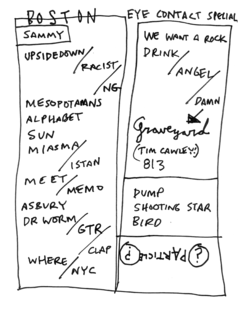 BOSTON
SAMMY
UPSIDEDOWN/
RACIST/
NG
MESOPOTAMANS
ALPHABET
SUN
MIASMA/
ISTAN
MEET/
MEMO
ASBURY
DR WORM/
GTR/
CLAP
WHERE/
NYC
EYE CONTACT SPECIAL
WE WANT A ROCK
DRINK/
ANGEL/
DAMN
Graveyard
(TIM CAWLEY!)
813
DUMP
SHOOTING STAR
BIRD
? PARTICLE ?